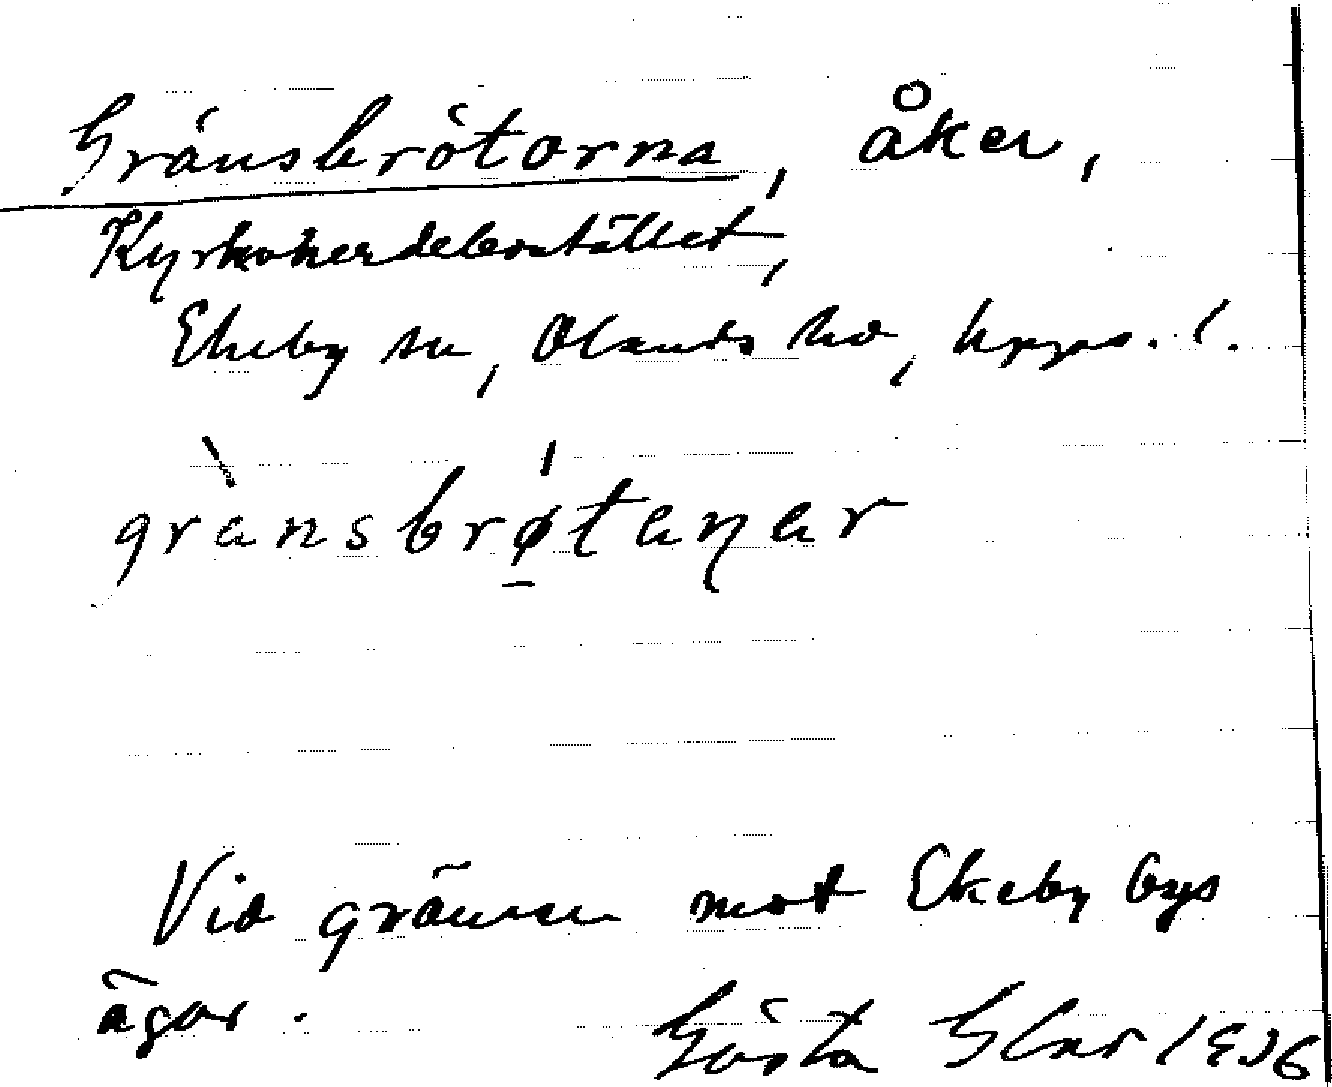 Gränsbrötorna, åker,
Kyrkoherdebostället,
Ekeby sn, Olands hd, Upps. l.
grànsbrǿ̱taṇar
Vid gränsen mot Ekeby bys
ägor.
Gösta Glas 1936